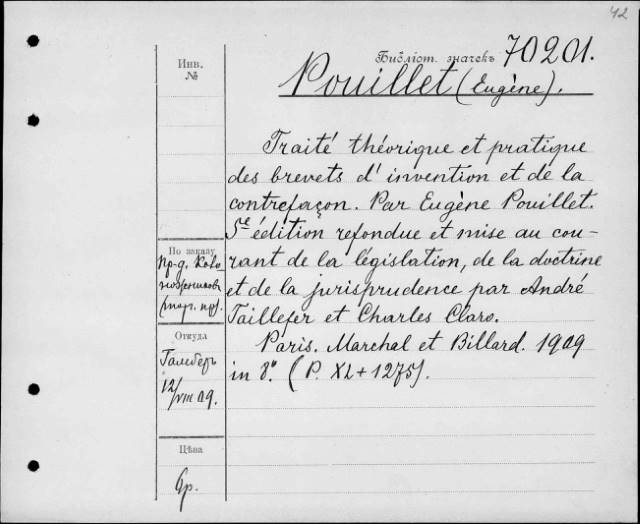 42
Библіот. значекъ 70201.
Инв.
№
Pouillet (Eugène).
Traité théorique et pratique
des brevets d'invention et de la
contrefaçon. Par Eugène Pouillet.
5e édition refondue et mise au cou-
rant de la législation, de la doctrine
et de la jurisprudence par André
Taillefer et Charles Claro.
Paris. Marchal et Billard. 1909
in 8°. (P. XL + 1275).
По заказу
пр-д.
(торг. пр).
Откуда
12/VIII 09.
Цѣна